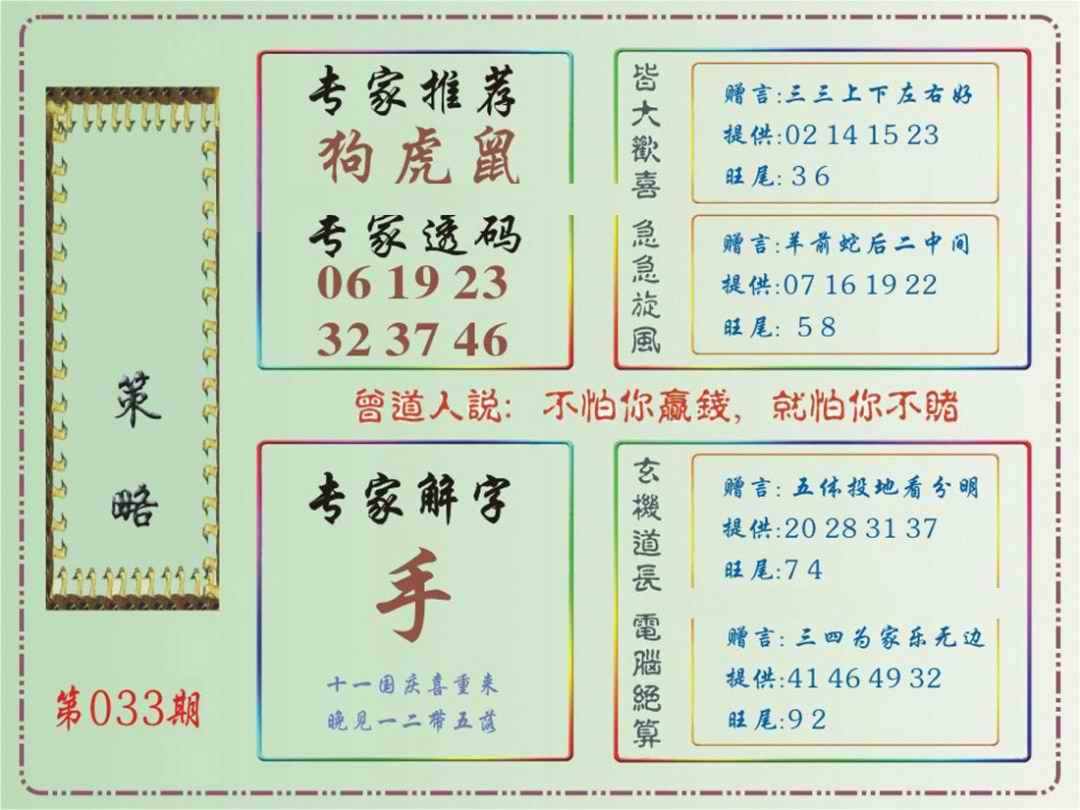 策
略
第033期
专家推荐
狗虎鼠
专家透码
06 19 23
32 37 46
皆大歡喜
赠言:三三上下左右好
提供:02 14 15 23
旺尾: 3 6
急急旋風
赠言:羊前蛇后二中间
提供:07 16 19 22
旺尾: 5 8
曾道人説: 不怕你赢錢, 就怕你不賭
专家解字
手
十一国庆喜重来
晚见一二带五落
玄機道長
赠言: 五体投地看分明
提供:20 28 31 37
旺尾:7 4
電腦絕算
赠言: 三四为家乐无边
提供:41 46 49 32
旺尾:9 2